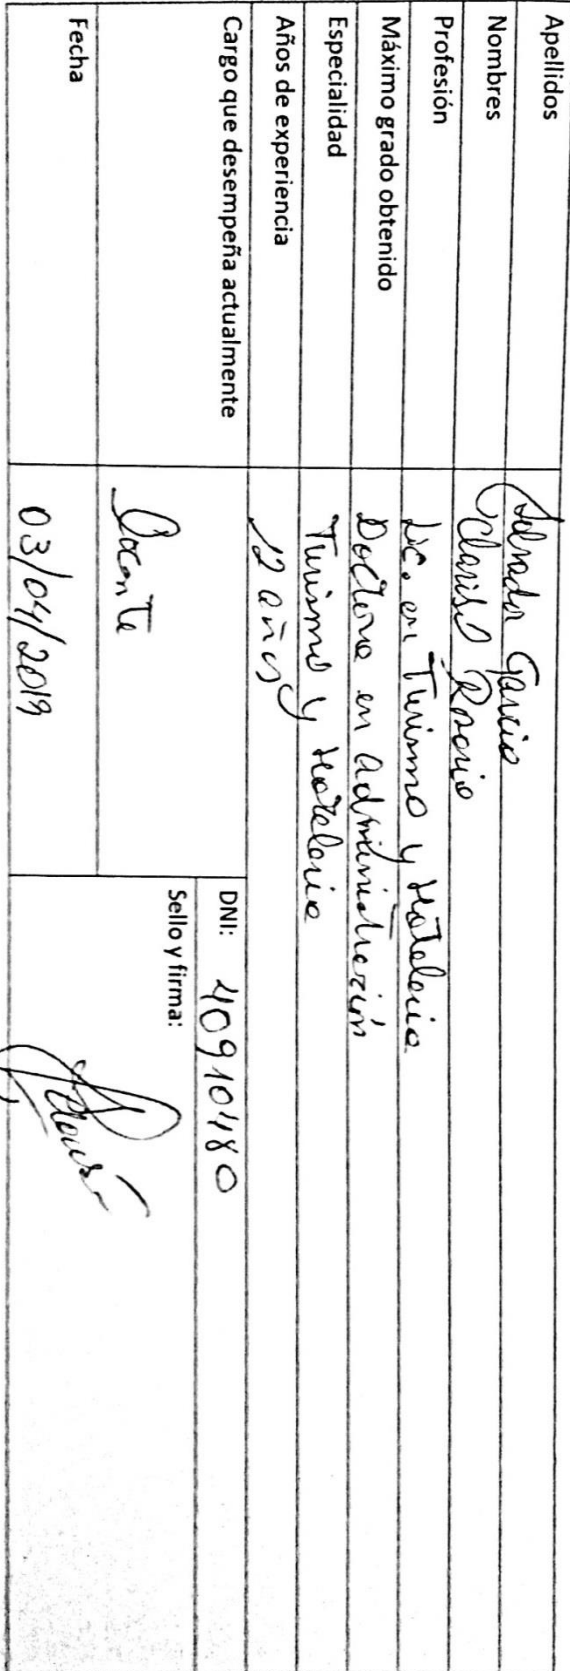 Apellidos Salvador Garcia
Nombres Clarisel Rosario
Profesión Lic. en Turismo y Hoteleria
Máximo grado obtenido Doctora en Administración
Especialidad Turismo y Hoteleria
Años de experiencia 12 años
Cargo que desempeña actualmente Docente
DNI: 40910480
Sello y firma:
Fecha 03/04/2019